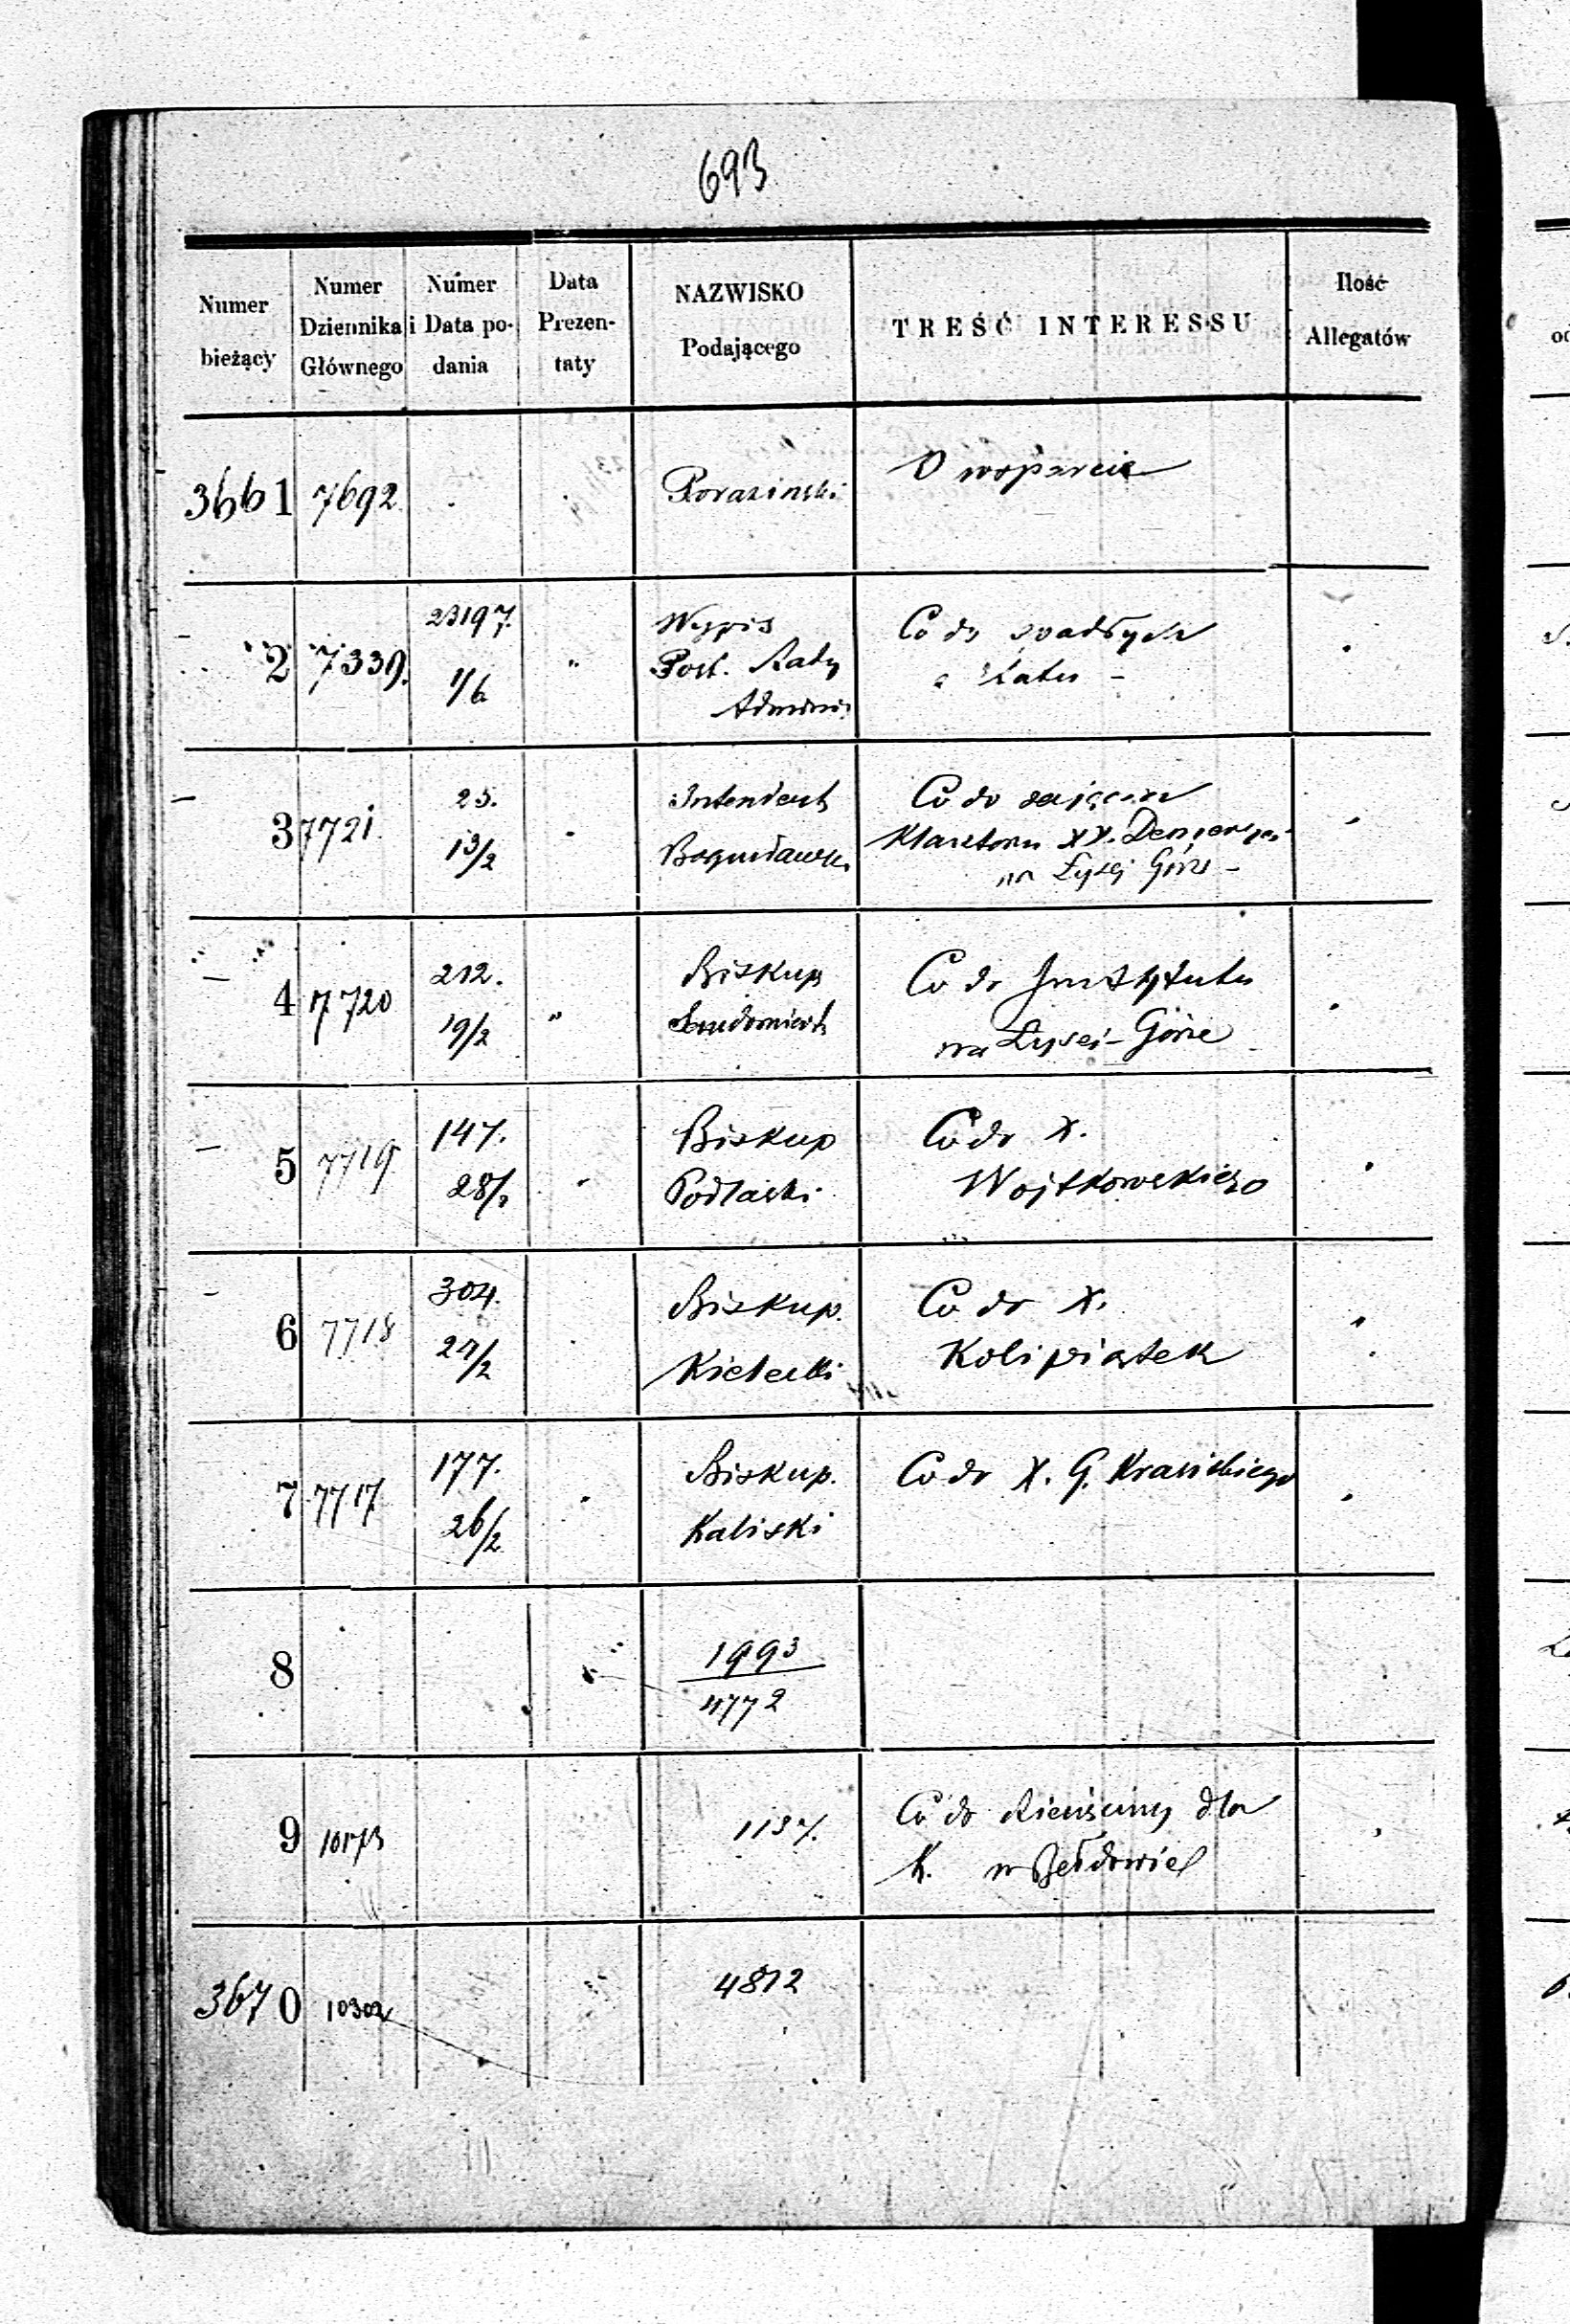 693
Numer bieżący
Numer Dziennika Głównego
Numer i Data podania
Data Prezentaty
NAZWISKO Podającego
TREŚĆ INTERESSU
Ilość Allegatów
3661 7692 Porazinski O wsparcie
2 7339. 23197. 1/6 " Wypis Post. Rady Adminis. Co do spadłych z Etatu -
3 7721 25. 13/2 Intendent Bogusławski Co do zajęcia Klasztoru XX. na Łysej Górze -
4 7720 212. 19/2 " Biskup Co do Instytutu na Łysej-Górze
5 7719 147. Biskup Podlaski Co do X. Wojtkowskiego
6 7718 304. 27/2 Biskup. Kielecki Co do X. Kolipiastek
7 7717 177. 26/2 Biskup. Kaliski Co do X. G. Krasickiego
8 1993 4772
9 1137. Co do dla K. w Bełdowie
3670 10302 4812